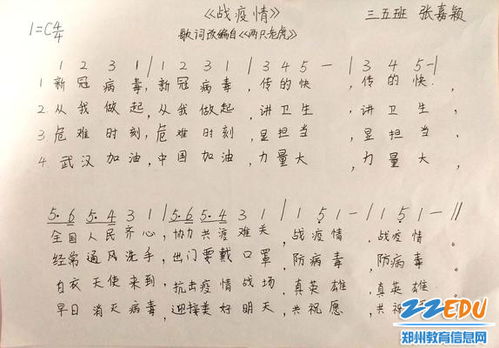 《战疫情》 三五班 张嘉颖
1=C4/4 歌词改编自《两只老虎》
1 2 3 1 | 1 2 3 1 | 3 4 5 - | 3 4 5 - |
1 新冠病毒,新冠病毒,传的快,传的快.
2. 从我做起,从我做起,讲卫生,讲卫生,
3. 危难时刻,危难时刻,显担当,显担当
4. 武汉加油,中国加油,力量大,力量大,
5.6 5.4 3 1 | 5.6 5.4 3 1 | 1 5 1 - | 1 5 1 - ||
全国人民齐心,协力共渡难关,战疫情,战疫情。
经常通风洗手,出门要戴口罩,防病毒,防病毒。
白衣天使来到,抗击疫情战场,真英雄,真英雄.
早日消灭病毒,迎接美好明天,共祝愿,共祝
22EDU
郑州教育信息网